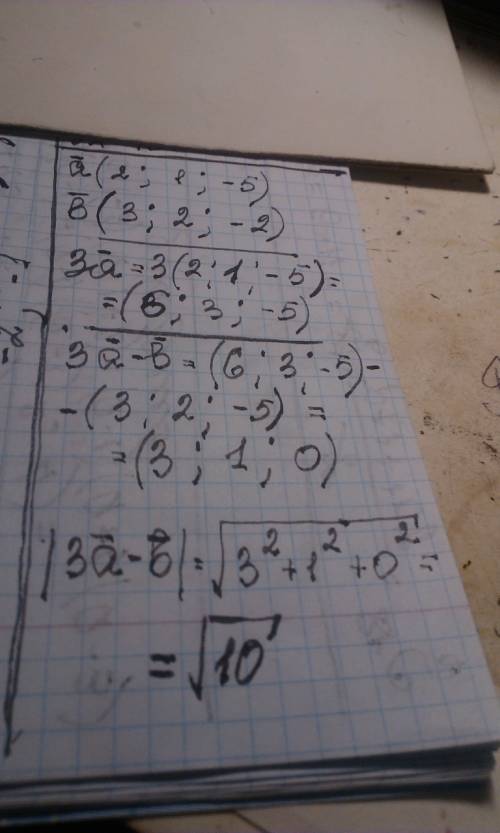 ā(2; 1; -5)
b̄(3; 2; -2)
3ā=3(2;1;-5)=
=(6; 3; -5)
3ā-b̄=(6;3;-5)-
-(3; 2; -5) =
=(3; 1; 0)
|3ā-b̄|=√3²+1²+0²=
=√10